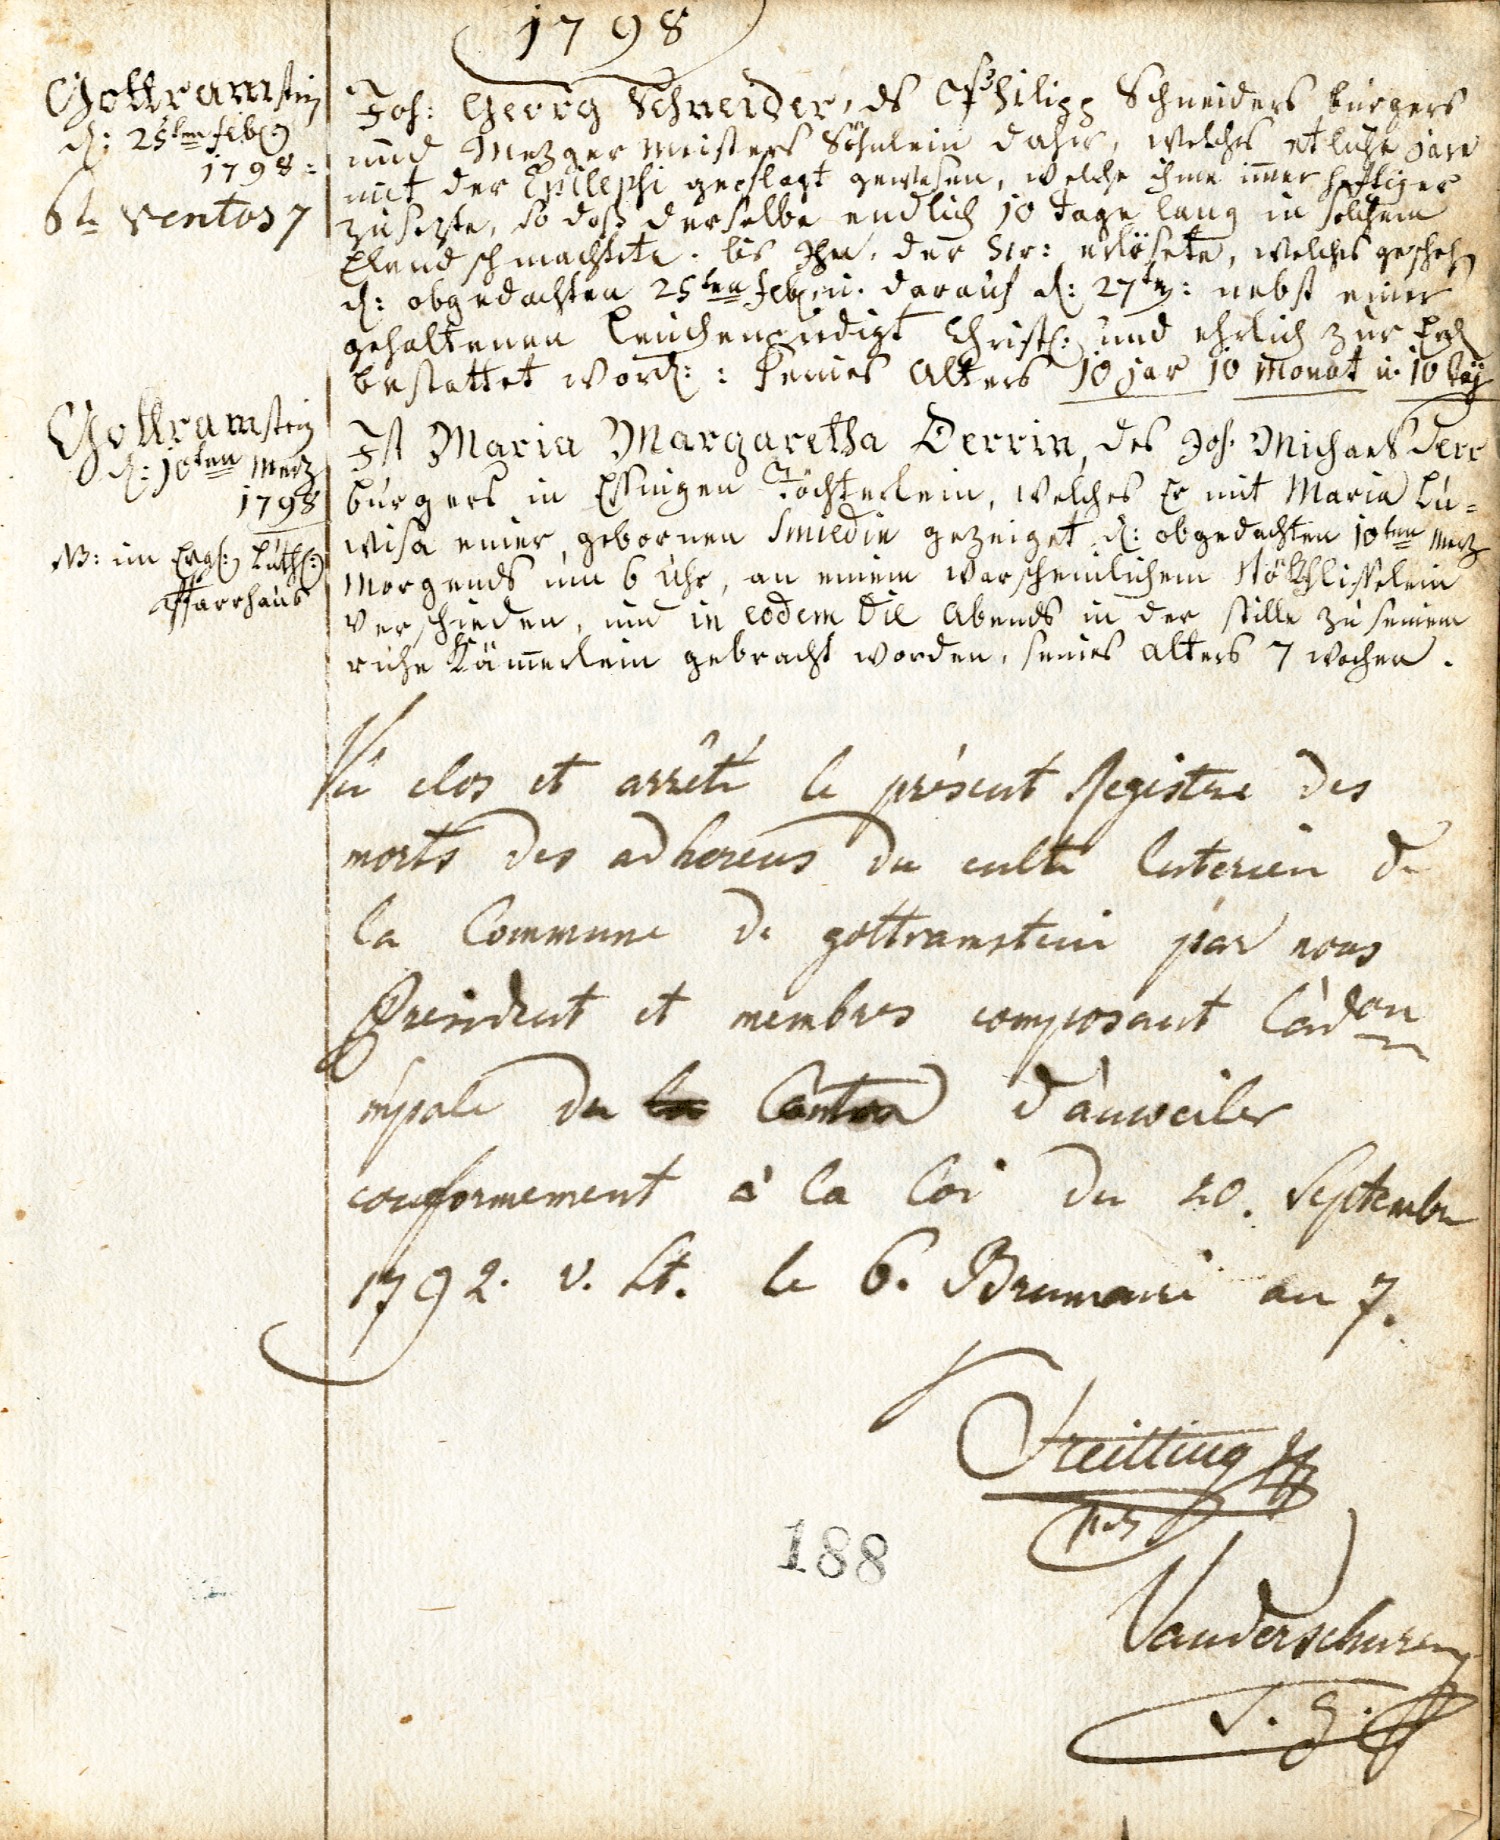 1798
Gottramstein
d: 25ten feb:
1798:
6te ventos 7
Joh: Georg Schneider, ds Philipp Schneiders burgers
und Mezger meisters Söhnlein dahir, welches etliche jare
mit der Epilepsi geplagt gewesen, welche ihme imer heftiger
zusezte, so daß derselbe endlich 10 tage lang in solchem
Elend schmachtete. bis Ihn, der Her: erlösete, welches gescheh
d: obgedachten 25ten feb: u. darauf d: 27ten: nebst einer
gehaltenen Leichenpredigt Christl: und ehrlich zur Erd
bestattet word: : seines Alters 10 jar 10 Monat u. 10 tag
Gottramstein
d: 10ten Merz
1798
NB: im Luth:
Pfarrhaus
Ist Maria Margaretha Derrin, des Joh. Michael Derr
burgers in Essingen Töchterlein, welches Er mit Maria Lu=
wisa einer, gebornen Smiedin gezeiget d: obgedachten 10ten Merz
Morgends um 6 uhr, an einem warscheinlichem
verschieden, und in eodem Die Abends in der stille zu seinem
ruhe Kämerlein gebracht worden, seines alters 7 wochen.
Vû clos et arrêté le présent Registre des
morts des adherens du culte luterien de
la Commune de gottramstein par nous
President et membres composant l'adon
mpale du la Canton d'anweiler
conformement à la loi du 20. Septembre
1792. v. st. le 6. Brumaire an 7.
Freitting
Pdt
188
Vanderschuren
S. G.